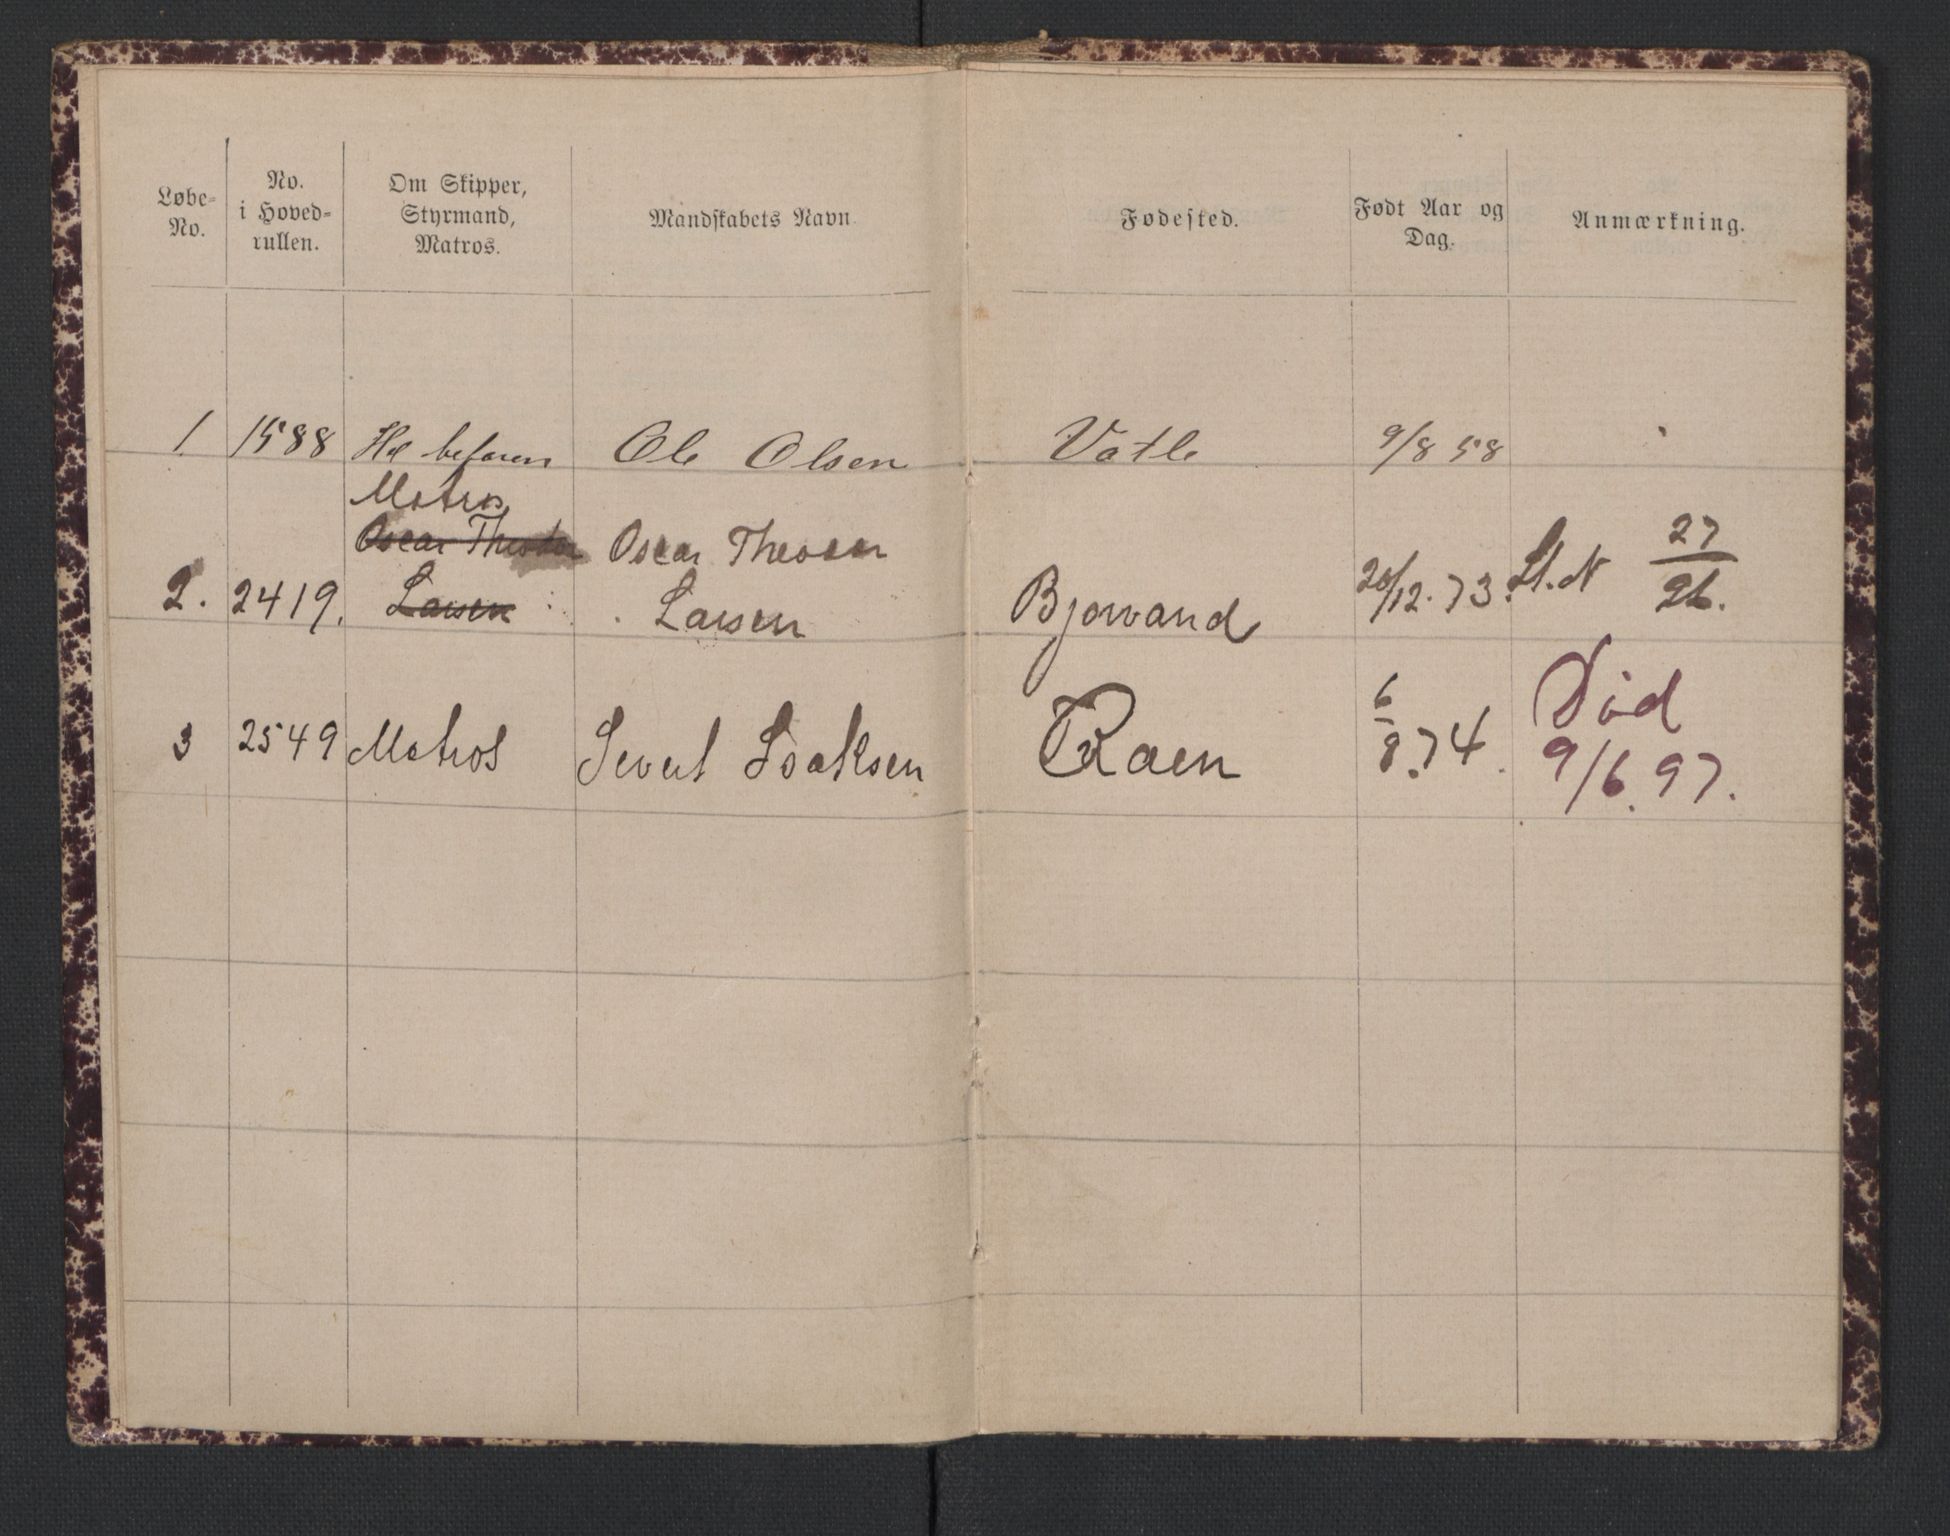 Løbe-
No.
No.
i Hoved-
rullen.
Om Skipper,
Styrmand,
Matros.
Mandskabets Navn.
Fødested.
Født Aar og
Dag.
Anmærkning.
1 1588 befaren Ole Olsen Vatle 9/8 58
Matros
Oscar Theodor Oscar Theodor
2. 2419. Larsen Larsen Bjorvand 20/12. 73. 27/26.
3 2549 Matros Severt Isaksen Raen 6/8.74. Død
9/6.97.